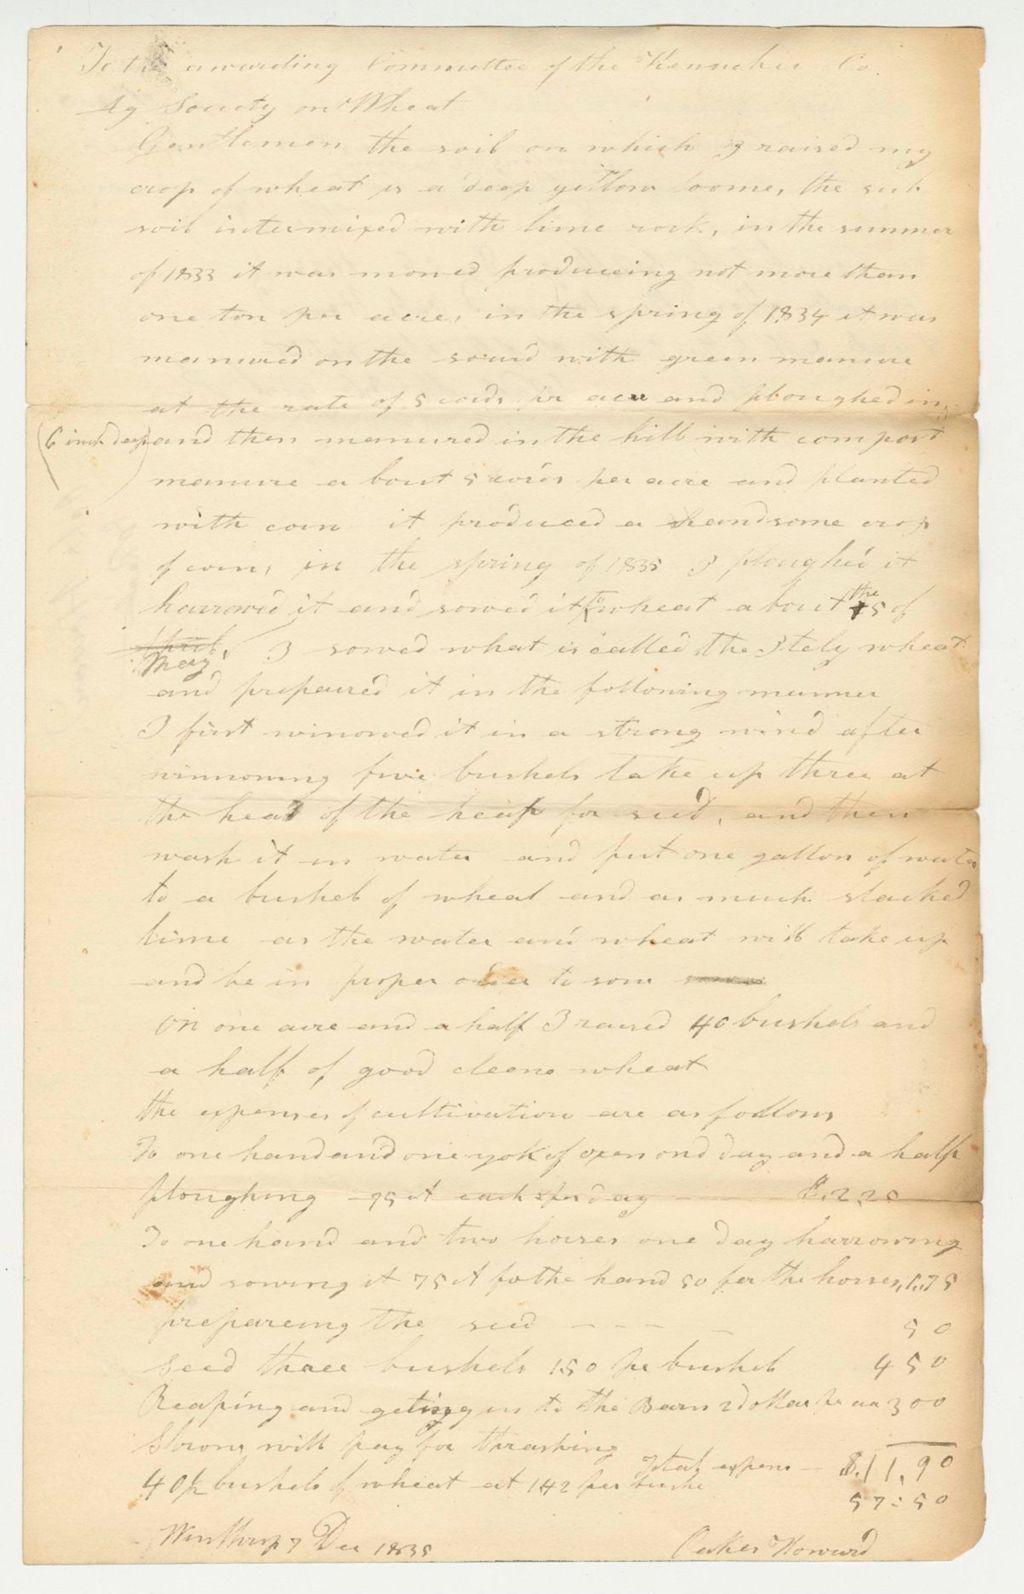 To the awarding Committee of the Kennebec Co.
Ag Society on Wheat
Gentlemen the soil on which I raised my
crop of wheat is a deep yellow loome, the sub
soil intermixed with lime rock, in the summer
of 1833 it was mowed produceing not more than
one ton per acre, in the spring of 1834 it was
manured on the sward with green manure
at the rate of 5 cords pr acre and ploughed in
(6 inch deep) and then manured in the hill with compost
manure about 5 cords per acre and planted
with corn it produced a handsome crop
of corn, in the spring of 1835 I ploughed it
harrowed it and sowed it to wheat about the 5 of
April May, I sowed what is called the Itely wheat
and prepaired it in the following manner
I first winowed it in a strong wind after
winnowing five bushels take up three at
the head of the heap for seed, and then
wash it in water and put one gallon of water
to a bushel of wheat and as much slacked
lime as the water and wheat will take up
and be in proper order to sow
On one acre and a half I raised 40 bushels and
a half of good cleene wheat
the expenses of cultivation are as follows
To one hand and one yok of oxen one day and a half
ploughing 75 ct each per day $.2.25
To one hand and two horses one day harrowing
and sowing it 75 ct for the hand 50 per the horses, 1,75
prepareing the seed - - - - 50
Seed three bushels 150 per bushel 4 50
Reaping and geting in to the Barn 2 dollar pr ac 3 00
Straw will pay for thrashing
Total expens - $.11.90
40½ bushels of wheat at 142 per bushe 57:50
Winthrop 7 Dec 1835 Oakes Howard